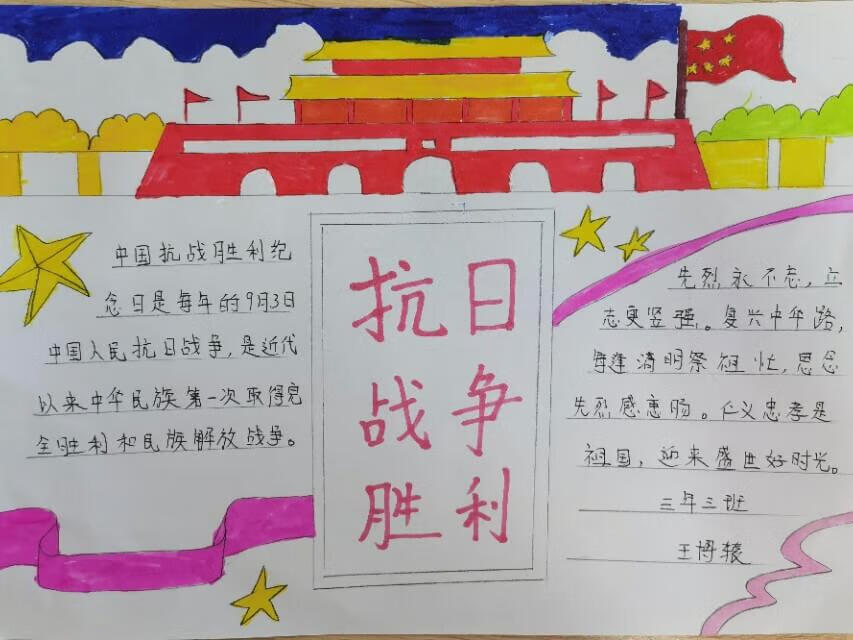 中国抗战胜利纪
念日是每年的9月3日
中国人民抗日战争，是近代
以来中华民族第一次取得完
全胜利和民族解放战争。
抗日
战争
胜利
先烈永不忘，立
志更坚强。复兴中华路，
每逢清明祭祖忙，思念
先烈感惠肠。仁义忠孝是
祖国，迎来盛世好时光。
三年三班
王博辕